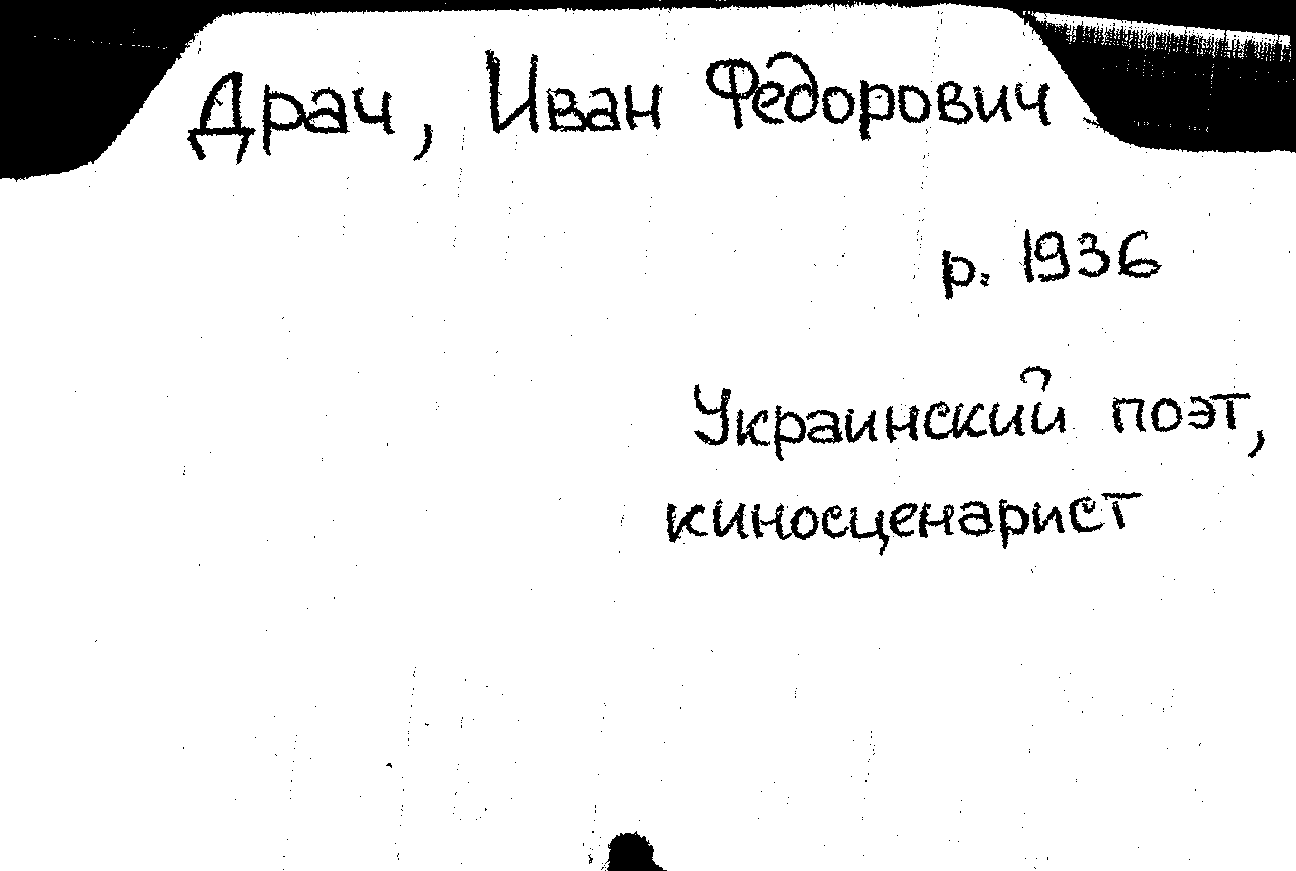 Драч, Иван Федорович
р. 1936
Украинский поэт,
киносценарист